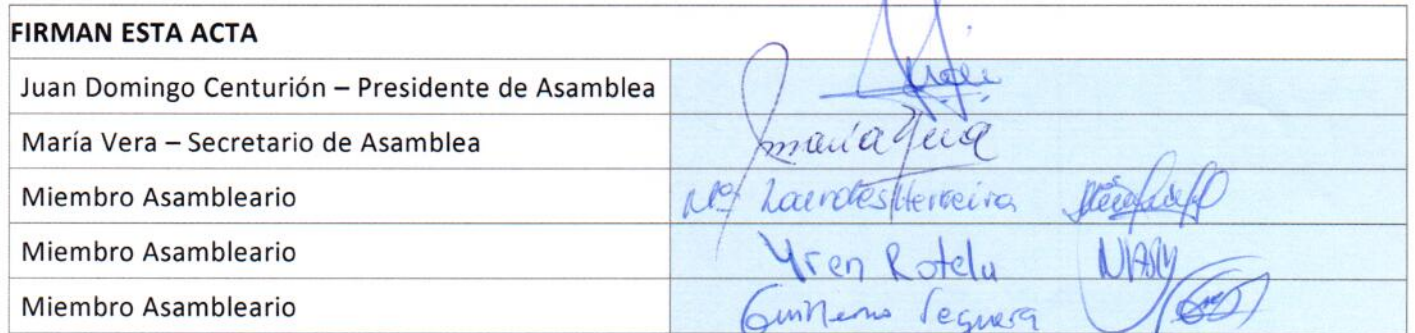 FIRMAN ESTA ACTA
Juan Domingo Centurión – Presidente de Asamblea
María Vera – Secretario de Asamblea maría Vera
Miembro Asambleario Mª Lourdes Herreira
Miembro Asambleario Yren Rotela
Miembro Asambleario Guillermo Seguera